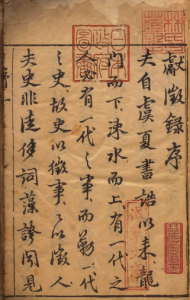 獻徵錄序
夫自虞夏書誥以来龍
門而下涑水而上有一代之
人必有一代之事而萬一代
之史故史以徵事事以徵人
夫史非徒侈詞藻誇聞見
序一